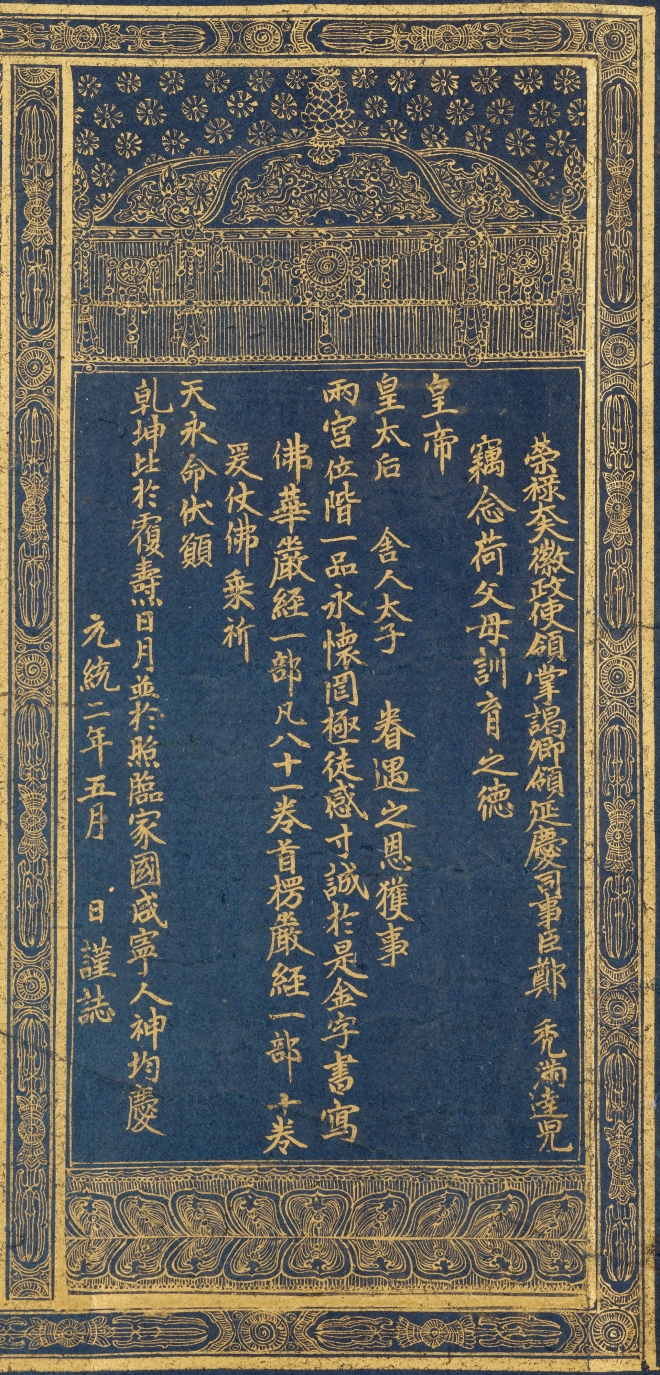 榮祿大夫徽政使領掌謁卿領延慶司事臣鄭　禿滿達兒
竊念荷父母訓育之德
皇帝
皇太后　舍人太子　眷遇之恩獲事
兩宮位階一品永懷罔極徒感寸誠於是金字書寫
佛華嚴經一部凡八十一卷首楞嚴經一部十卷
爰仗佛乘祈
天永命伏願
乾坤比於覆燾日月並於照臨家國咸寧人神均慶
元統二年五月　日謹誌